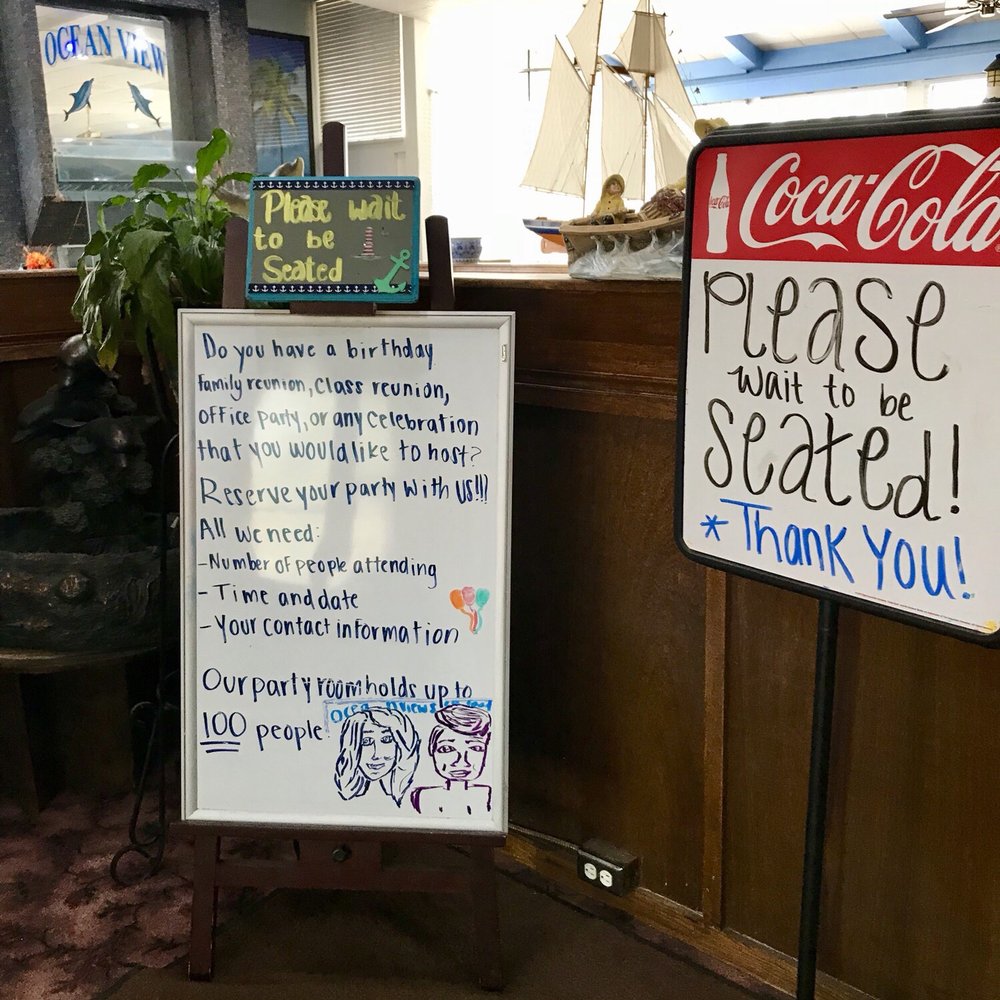 OCEAN VIEW
Please wait
to be
Seated
Do you have a birthday
family reunion, class reunion,
office party, or any celebration
that you would like to host?
Reserve your party with us!!!
All we need:
- Number of people attending
- Time and date
- Your contact information
Our party room holds up to
100 people
Coca-Cola
Please
wait to be
Seated!
* Thank You!